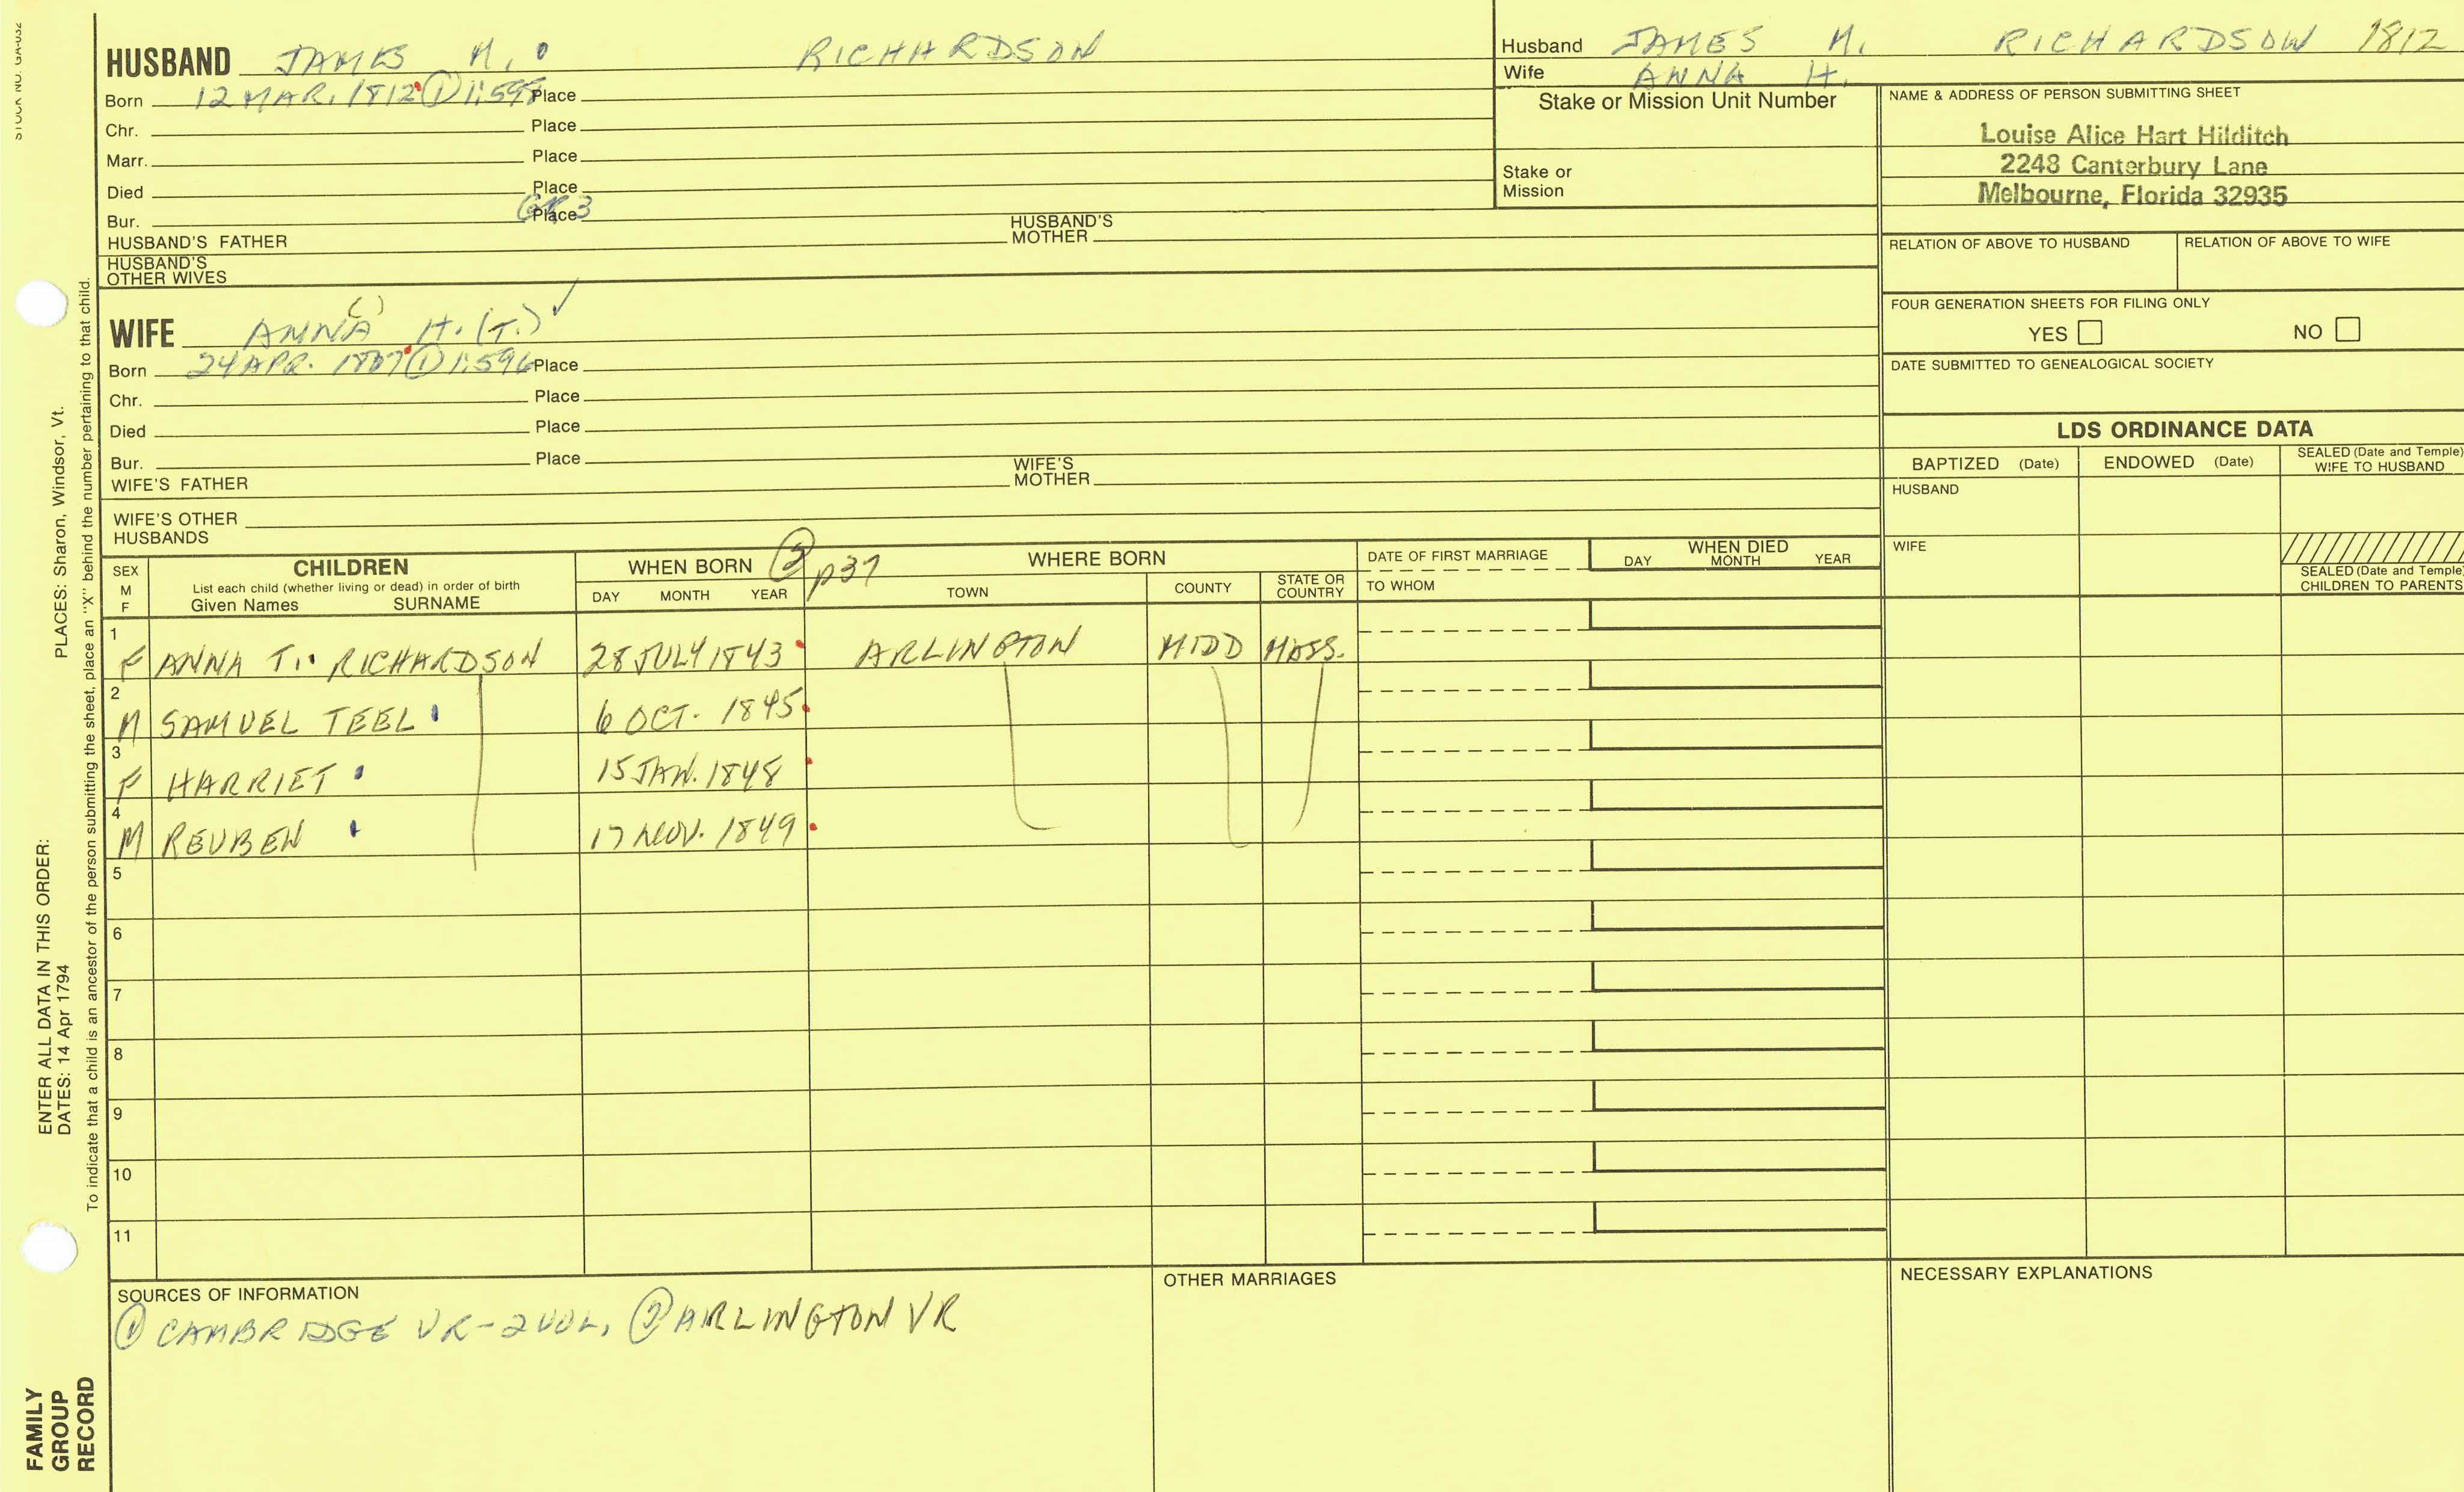 STOCK NO. GA-032
HUSBAND JAMES M. RICHARDSON
Born 12 MAR. 1812 ① 1:598 Place
Chr. Place
Marr. Place
Died Place
Bur. GR3 Place
HUSBAND'S FATHER HUSBAND'S MOTHER
HUSBAND'S OTHER WIVES
Husband JAMES M. RICHARDSON 1812
Wife ANNA H.
Stake or Mission Unit Number
Stake or Mission
NAME & ADDRESS OF PERSON SUBMITTING SHEET
Louise Alice Hart Hilditch
2248 Canterbury Lane
Melbourne, Florida 32935
RELATION OF ABOVE TO HUSBAND RELATION OF ABOVE TO WIFE
FOUR GENERATION SHEETS FOR FILING ONLY
YES NO
DATE SUBMITTED TO GENEALOGICAL SOCIETY
WIFE ANNA ( ) H. (T.) ✓
Born 24 APR. 1807 ① 1:596 Place
Chr. Place
Died Place
Bur. Place
WIFE'S FATHER WIFE'S MOTHER
WIFE'S OTHER HUSBANDS
LDS ORDINANCE DATA
BAPTIZED (Date) ENDOWED (Date) SEALED (Date and Temple) WIFE TO HUSBAND
HUSBAND
WIFE
SEALED (Date and Temple) CHILDREN TO PARENTS
SEX M F
CHILDREN
List each child (whether living or dead) in order of birth
Given Names SURNAME
WHEN BORN ② p37
DAY MONTH YEAR
WHERE BORN
TOWN COUNTY STATE OR COUNTRY
DATE OF FIRST MARRIAGE
TO WHOM
WHEN DIED
DAY MONTH YEAR
1 F ANNA T. RICHARDSON 28 JULY 1843 ARLINGTON MIDD MASS.
2 M SAMUEL TEEL 6 OCT. 1845
3 F HARRIET 15 JAN. 1848
4 M REUBEN 17 NOV. 1849
5
6
7
8
9
10
11
SOURCES OF INFORMATION
① CAMBRIDGE VR-2VOL, ② ARLINGTON VR
OTHER MARRIAGES
NECESSARY EXPLANATIONS
FAMILY GROUP RECORD
ENTER ALL DATA IN THIS ORDER:
DATES: 14 Apr 1794 PLACES: Sharon, Windsor, Vt.
To indicate that a child is an ancestor of the person submitting the sheet, place an "X" behind the number pertaining to that child.